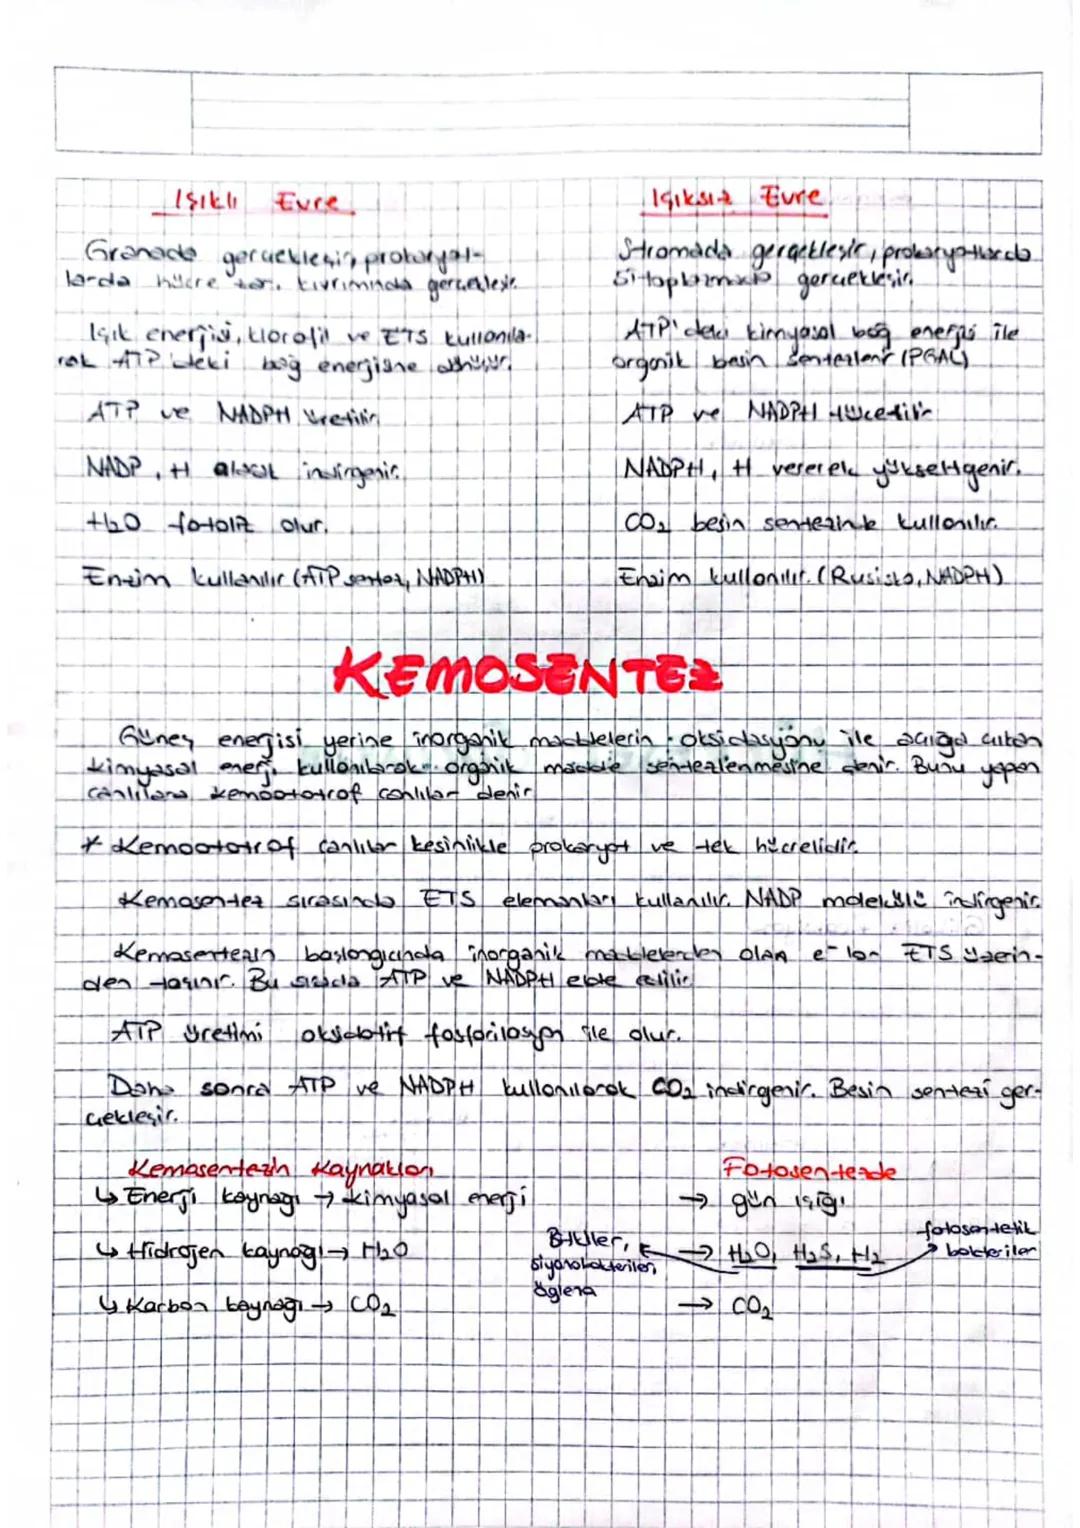 Işıklı Evre
Granada gerçekleşir, prokaryot-
larda hücre zarı kıvrımında gerçekleşir.
Işık enerjisi, klorofil ve ETS kullanıla-
rak ATP'deki bağ enerjisine dönüşür.
ATP ve NADPH üretilir.
NADP, H alarak indirgenir.
H₂O fotoliz olur.
Enzim kullanılır (ATP sentaz, NADPH)
Işıksız Evre
Stromada gerçekleşir, prokaryotlarda
sitoplazmada gerçekleşir.
ATP'deki kimyasal bağ enerjisi ile
organik besin sentezlenir (PGAL)
ATP ve NADPH tüketilir
NADPH, H vererek yükseltgenir.
CO₂ besin sentezinde kullanılır.
Enzim kullanılır. (Rusisko, NADPH)
KEMOSENTEZ
Güneş enerjisi yerine inorganik maddelerin oksidasyonu ile açığa çıkan
kimyasal enerji kullanılarak organik madde sentezlenmesine denir. Bunu yapan
canlılara kemoototrof canlılar denir
* Kemoototrof canlılar kesinlikle prokaryot ve tek hücrelidir.
Kemosentez sırasında ETS elemanları kullanılır. NADP molekülü indirgenir.
Kemosentezin başlangıcında inorganik maddelerden olan e⁻ lar ETS üzerin-
den taşınır. Bu sırada ATP ve NADPH elde edilir.
ATP üretimi oksidatif fosforilasyon ile olur.
Daha sonra ATP ve NADPH kullanılarak CO₂ indirgenir. Besin sentezi ger-
çekleşir.
Kemosentezin Kaynakları
↳ Enerji kaynağı → kimyasal enerji
↳ Hidrojen kaynağı → H₂O
↳ Karbon kaynağı → CO₂
Fotosentezde
→ gün ışığı
Bitkiler,
siyanobakteriler,
öglena
→ H₂O, H₂S, H₂
fotosentetik
bakteriler
→ CO₂